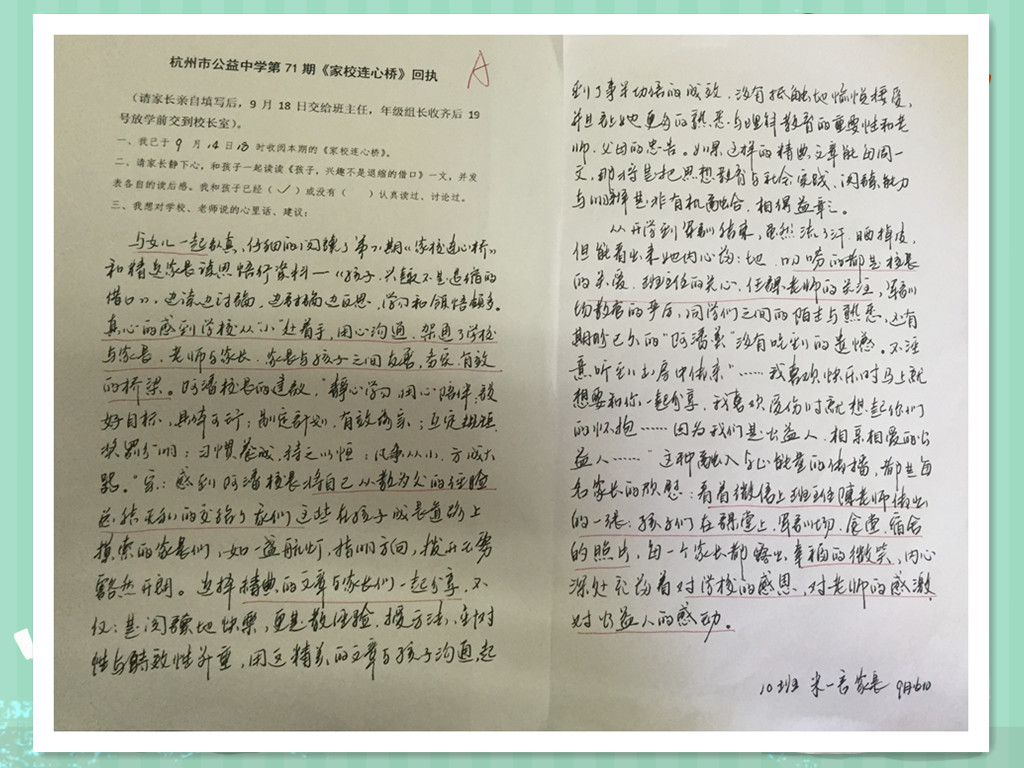 杭州市公益中学第71期《家校连心桥》回执
A
（请家长亲自填写后，9月18日交给班主任，年级组长收齐后19
号放学前交到校长室）。
一、我已于9月14日18时收阅本期的《家校连心桥》。
二、请家长静下心，和孩子一起读读《孩子，兴趣不是退缩的借口》一文，并发
表各自的读后感。我和孩子已经（✓）或没有（ ）认真读过、讨论过。
三、我想对学校、老师说的心里话、建议：
与女儿一起认真、仔细的阅读了第71期《家校连心桥》
和精选家长读思悟行资料一《孩子，兴趣不是退缩的
借口》，边读边讨论，边讨论边反思，学习和领悟颇多。
真心的感到学校从"小"处着手，用心沟通，架通了学校
与家长、老师与家长、家长与孩子之间友善、务实、有效
的桥梁。阿潘校长的建议，"静心学习，用心陪伴，设
好目标，具体可行；制定计划，有效落实；互定规矩，
奖罚分明；习惯养成，持之以恒；凡事从小，方成大
器。"深感到阿潘校长将自己从教为父的经验
总结无私的交给了家们这些在孩子成长道路上
摸索的家长们，如一盏航灯，指明方向，拨开云雾
豁然开朗。选择精典的文章与家长们一起分享，不
仅是阅读地快乐，更是教经验、授方法，针对
性与时效性并重，用这精美的文章与孩子沟通，起
到了事半功倍的成效，没有抵触地愉悦接受，
并且让她更多的熟悉与理科教育的重要性和老
师、父母的忠告。如果这样的精典文章能每周一
文，那将是把思想教育与社会实践、阅读能力
与明辨是非有机融合，相得益彰。
从开学到军训结束，虽然流了汗、晒掉皮，
但能看出来她内心的：她叨唠的都是校长
的关爱，班主任的关心，任课老师的关注，军训
场教官的严厉，同学们之间的陌生与熟悉，还有
期盼已久的"阿潘羹"没有吃到的遗憾。不注
意听到书房中传来"……我喜欢快乐时马上就
想要和你一起分享，我喜欢受伤时就想起你们
的怀抱……因为我们是公益人，相亲相爱的公
益人……"这种融入与正能量的传播，都是每
名家长的欣慰；看着微信上班主任陈老师传出
的一张张孩子们在课堂上、军训场、食堂、宿舍
的照片，每一个家长都露出幸福的微笑，内心
深处充满着对学校的感恩、对老师的感激、
对公益人的感动。
10班 米一言家长 9月16日